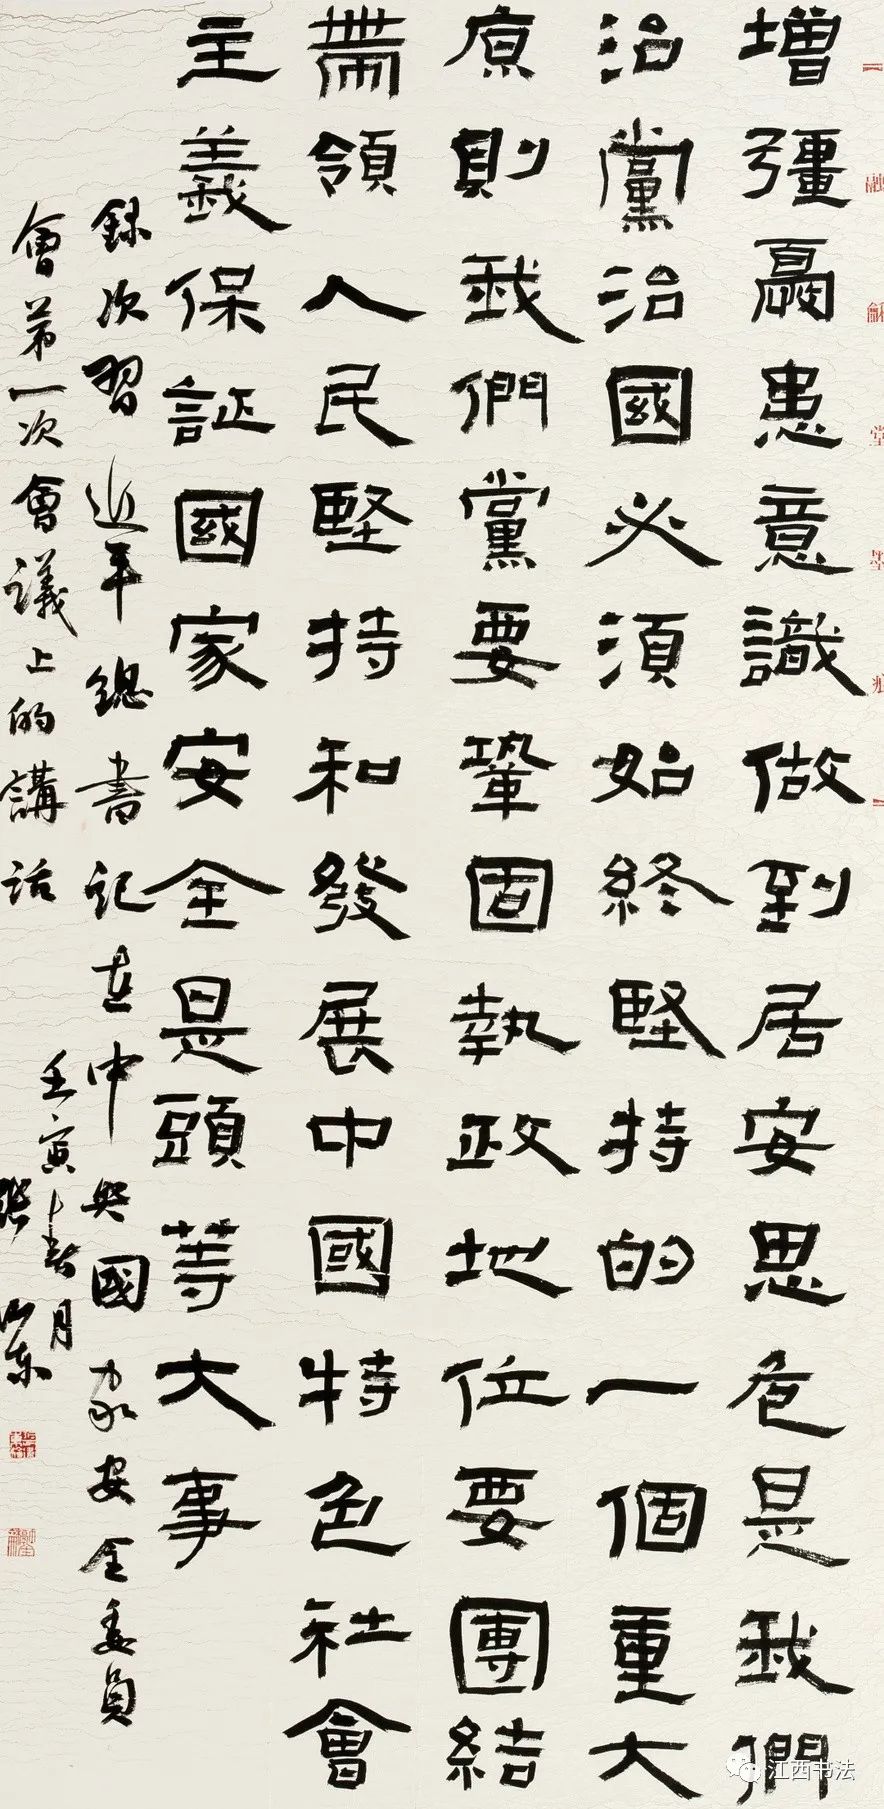 增彊憂患意識做到居安思危是我們
治黨治國必須始終堅持的一個重大
原則我們黨要鞏固執政地位要團結
帶領人民堅持和發展中國特色社會
主義保証國家安全是頭等大事
錄次習近平總書記在中央國家安全委員
會第一次會議上的講話
壬寅春月
江西书法